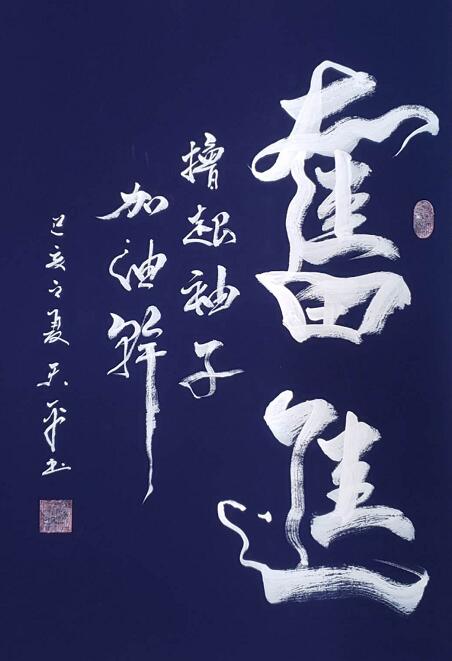 奮進
擼起袖子
加油幹
己亥之夏天平书